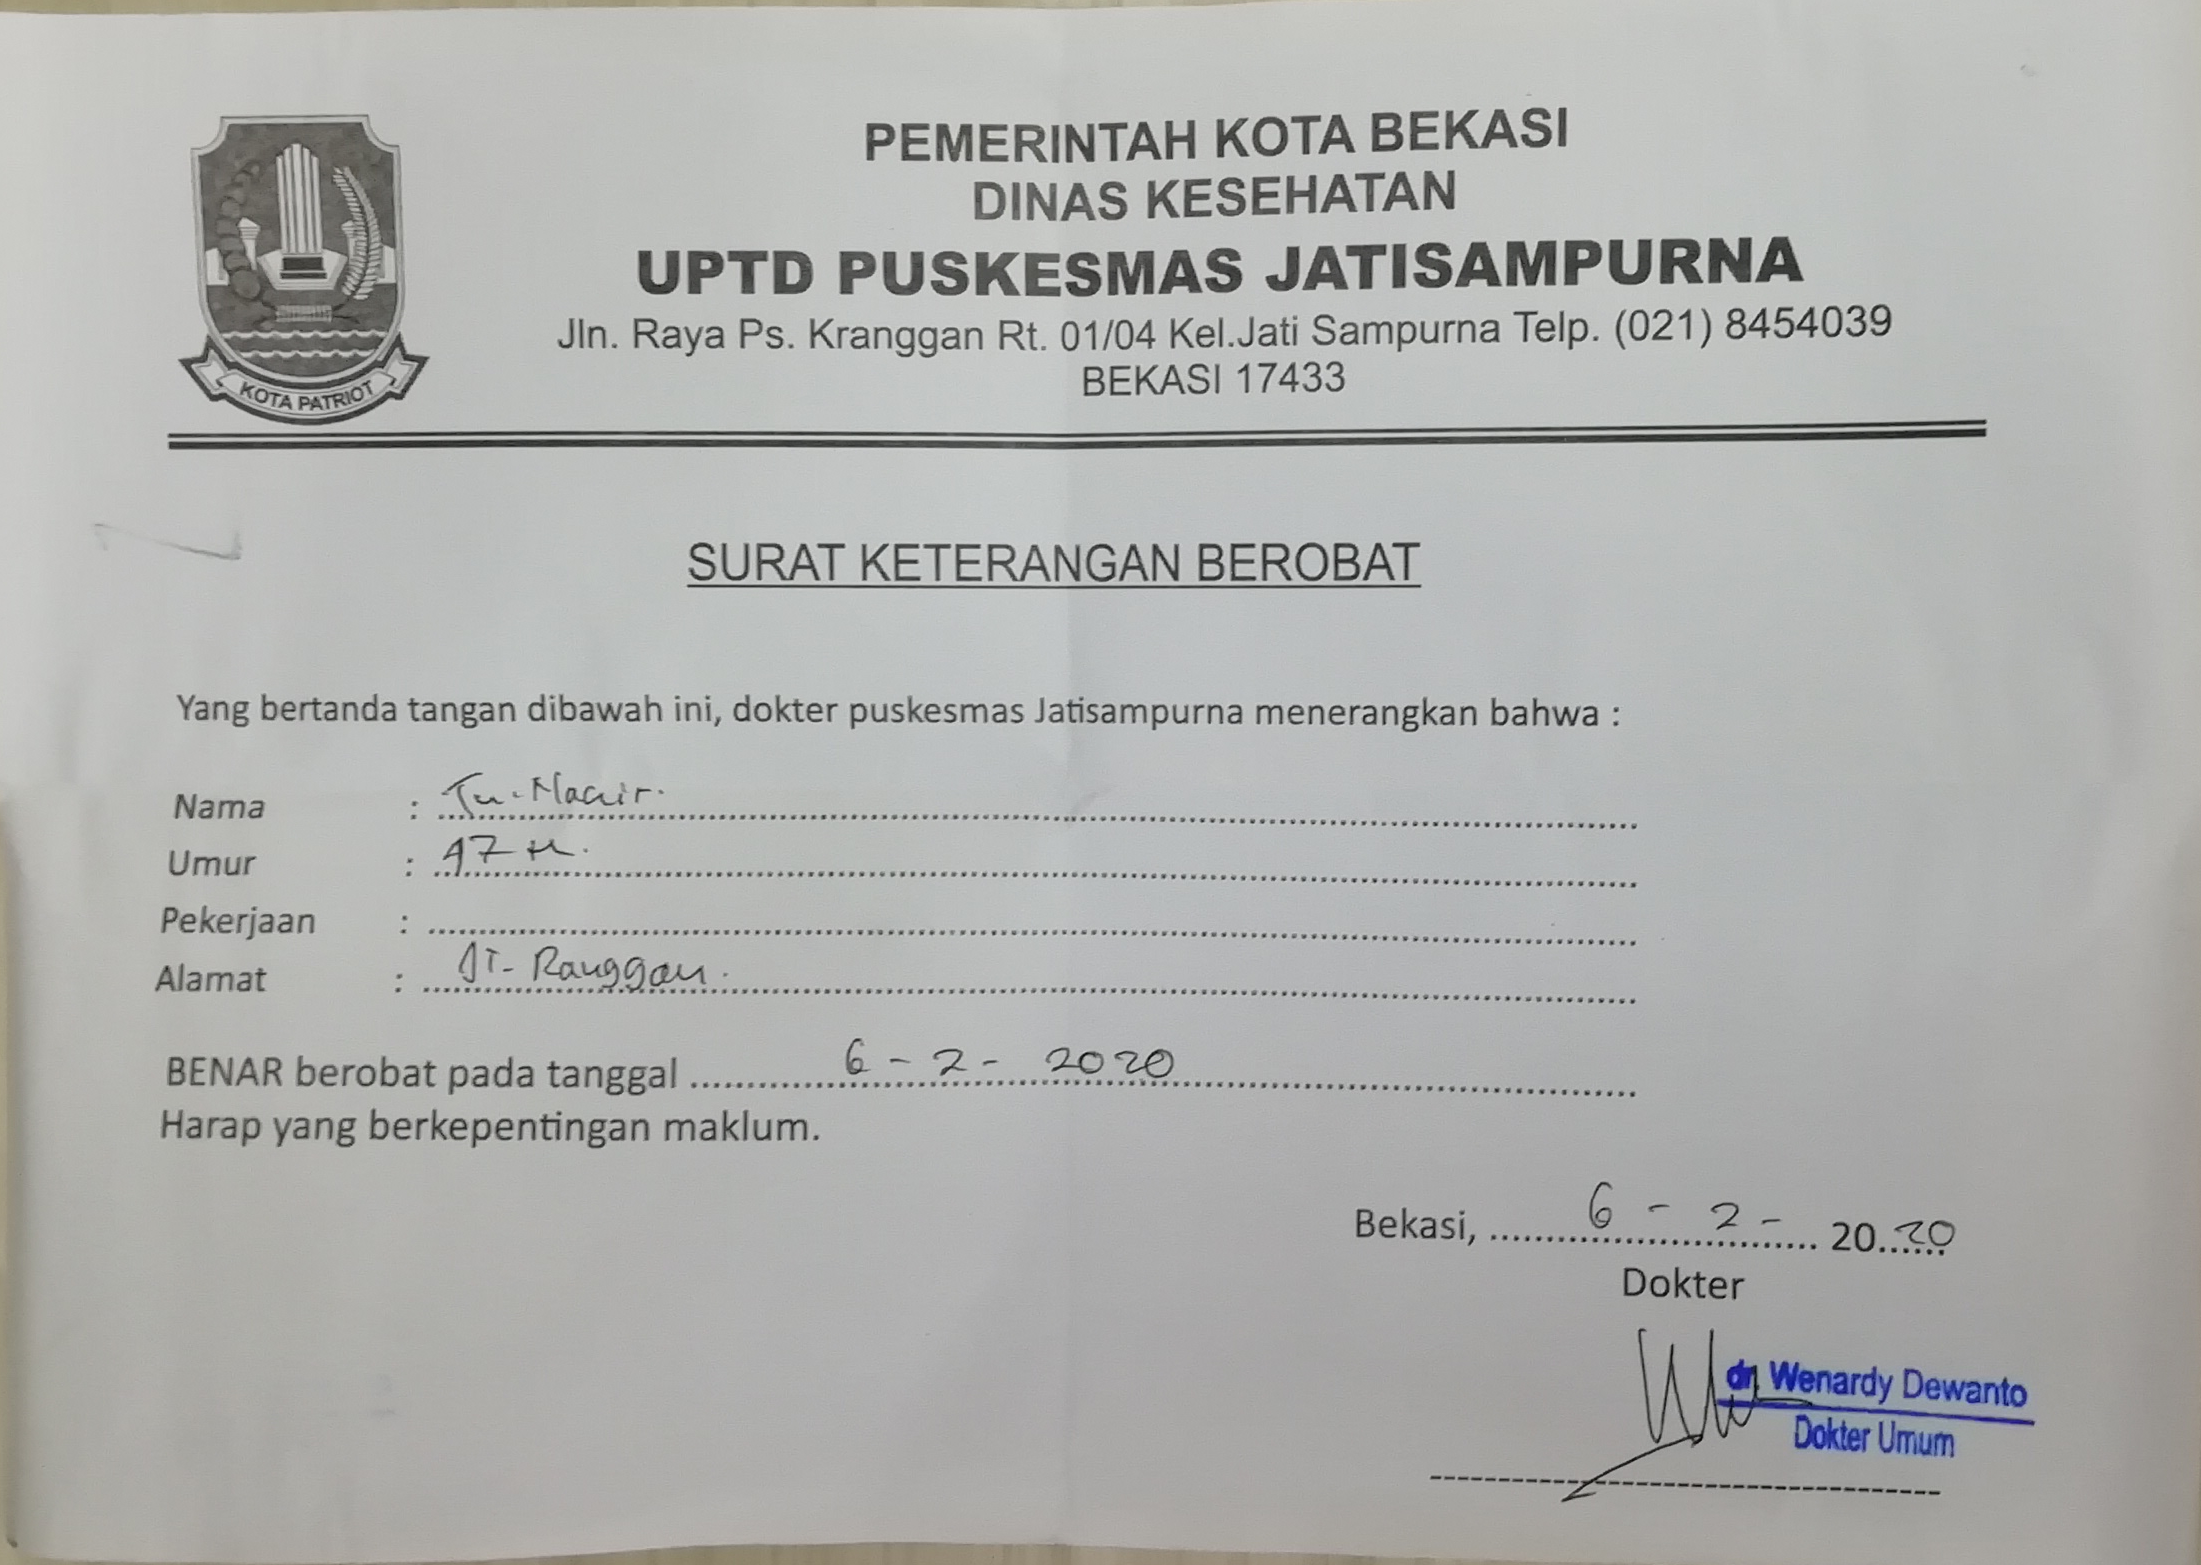 PEMERINTAH KOTA BEKASI
DINAS KESEHATAN
UPTD PUSKESMAS JATISAMPURNA
Jln. Raya Ps. Kranggan Rt. 01/04 Kel.Jati Sampurna Telp. (021) 8454039
BEKASI 17433
KOTA PATRIOT
SURAT KETERANGAN BEROBAT
Yang bertanda tangan dibawah ini, dokter puskesmas Jatisampurna menerangkan bahwa :
Nama : Tn.
Umur : 47 th.
Pekerjaan :
Alamat : Ranggan.
BENAR berobat pada tanggal 6 - 2 - 2020
Harap yang berkepentingan maklum.
Bekasi, 6 - 2 - 2020
Dokter
dr. Wenardy Dewanto
Dokter Umum